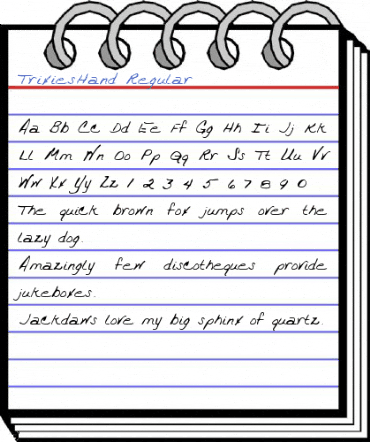 TrixiesHand Regular
Aa Bb Cc Dd Ee Ff Gg Hh Ii Jj Kk
Ll Mm Nn Oo Pp Qq Rr Ss Tt Uu Vv
Ww Xx Yy Zz 1 2 3 4 5 6 7 8 9 0
The quick brown fox jumps over the
lazy dog.
Amazingly few discotheques provide
jukeboxes.
Jackdaws love my big sphinx of quartz.